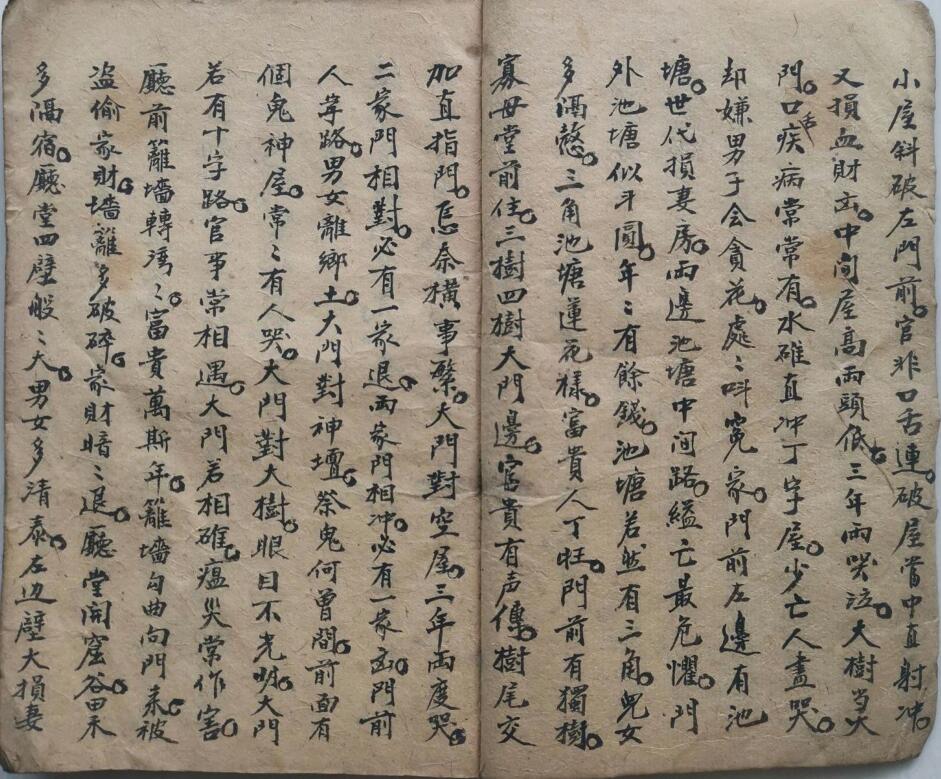 小屋斜破左門前。官非口舌連。破屋當中直射冲。
又損血財凶。中间屋高両頭低。三年両哭泣。大樹当
門。口舌疾病常常有。水碓直冲丁字屋。少亡人盡哭。
却嫌男子会貪花。處〻叫寃家。門前左邊有池
塘。世代損妻房。両邊池塘中间路。縊亡最危懼。門
外池塘似斗圓。年〻有餘錢。池塘若然有三角。兒女
多酒憨。三角池塘蓮花樣。富貴人丁旺。門前有獨樹。
寡母堂前住。三樹四樹大門邊。官貴有声傳。樹尾交
加直指門。忌奈横事繁。大門對空屋。三年両度哭。
二家門相對。必有一家退。両家門相冲。必有一家凶。門前
人字路。男女離鄉土。大門對神壇。祭鬼何曾閒。前面有
個鬼神屋。常〻有人哭。大門對大樹。眼目不光明。大門
若有十字路。官事常相遇。大門若相碓。瘟災常作害。
廳前籬墙轉湾〻。富貴萬斯年。籬墙勾曲向門来。被
盗偷家財。墙籬多破碎。家財暗〻退。廳堂開窟谷田来
多隔宿。廳堂四壁般〻大。男女多清泰。左边壁大損妻